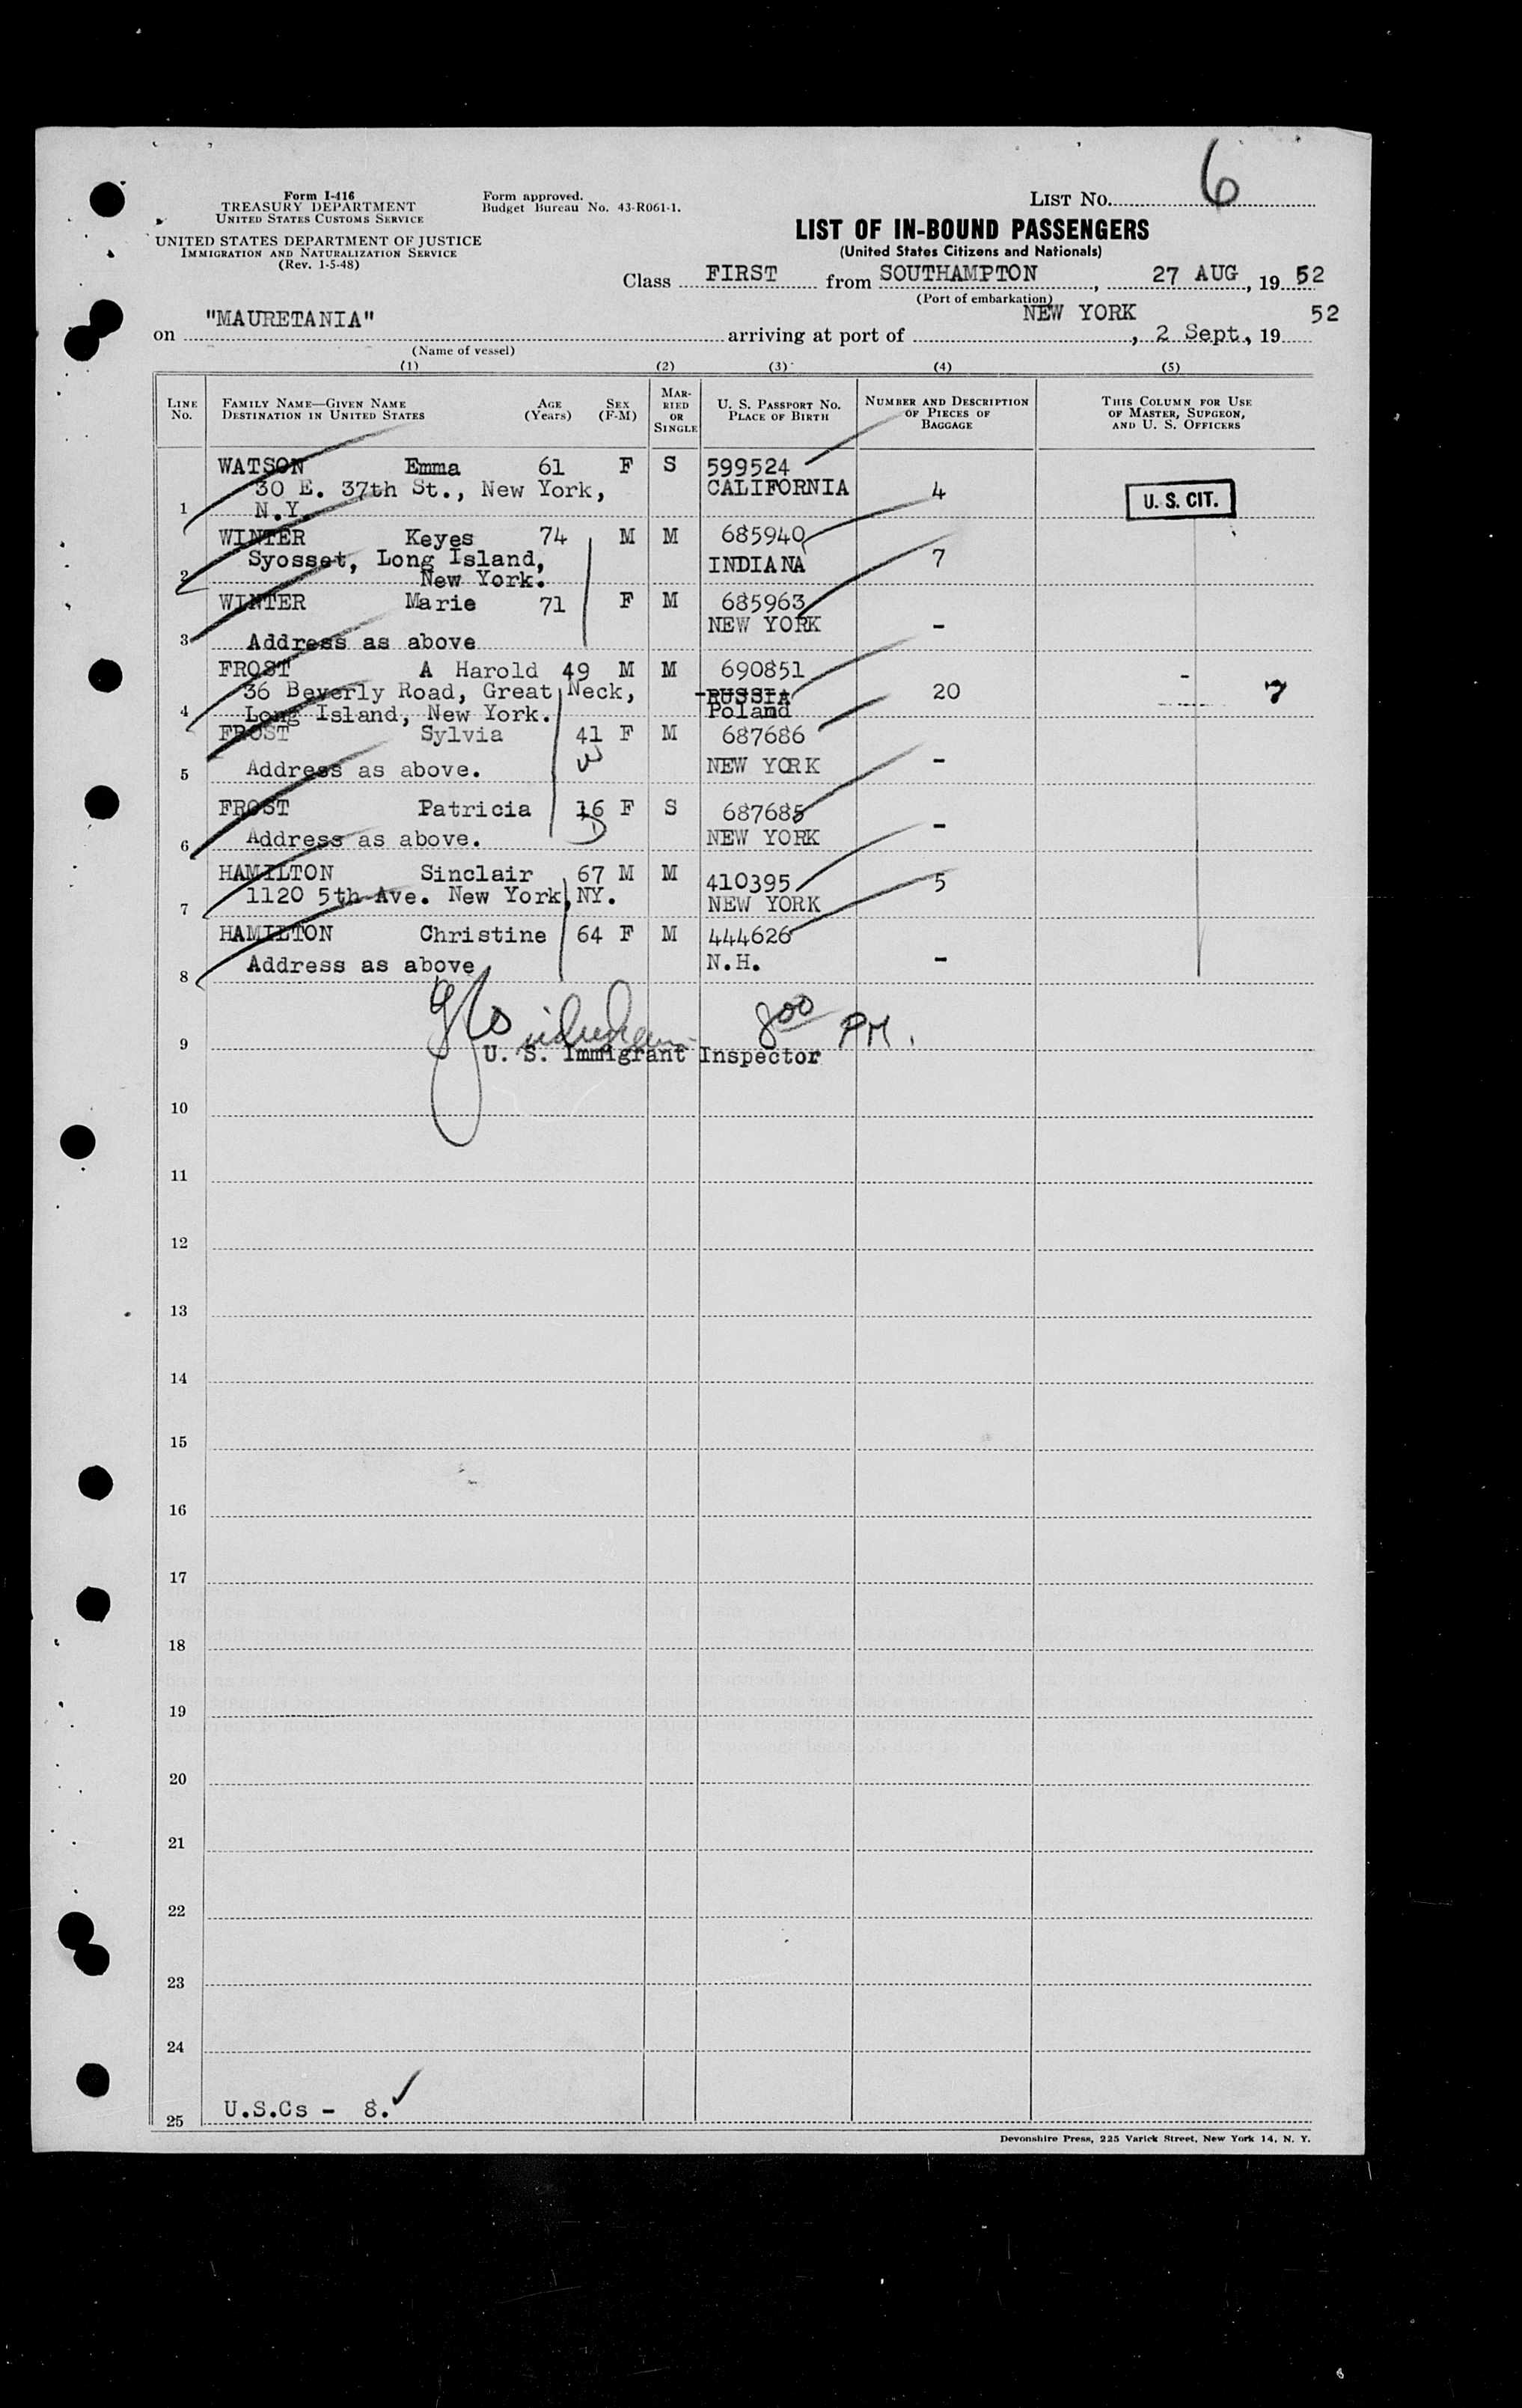 6
Form I-416
TREASURY DEPARTMENT
UNITED STATES CUSTOMS SERVICE
Form approved.
Budget Bureau No. 43-R061-1.
LIST NO.
UNITED STATES DEPARTMENT OF JUSTICE
IMMIGRATION AND NATURALIZATION SERVICE
(Rev. 1-5-48)
LIST OF IN-BOUND PASSENGERS
(United States Citizens and Nationals)
Class FIRST from SOUTHAMPTON, 27 AUG, 19 52
(Port of embarkation)
on "MAURETANIA" arriving at port of NEW YORK, 2 Sept., 19 52
(Name of vessel)
(1) (2) (3) (4) (5)
LINE NO. FAMILY NAME—GIVEN NAME DESTINATION IN UNITED STATES AGE (Years) SEX (F-M) MARRIED OR SINGLE U. S. PASSPORT NO. PLACE OF BIRTH NUMBER AND DESCRIPTION OF PIECES OF BAGGAGE THIS COLUMN FOR USE OF MASTER, SURGEON, AND U. S. OFFICERS
WATSON Emma 61 F S 599524
30 E. 37th St., New York, CALIFORNIA 4 U. S. CIT.
1 N.Y.
WINTER Keyes 74 M M 685940
Syosset, Long Island, INDIANA 7
2 New York.
WINTER Marie 71 F M 685963
NEW YORK -
3 Address as above
FROST A Harold 49 M M 690851
36 Beverly Road, Great Neck, RUSSIA 20 - 7
4 Long Island, New York. Poland
FROST Sylvia 41 F M 687686
5 Address as above. NEW YORK -
FROST Patricia 16 F S 687685
6 Address as above. NEW YORK -
HAMILTON Sinclair 67 M M 410395 5
7 1120 5th Ave. New York, NY. NEW YORK
HAMILTON Christine 64 F M 444626
8 Address as above N.H. -
8 00 PM.
9 U. S. Immigrant Inspector
10
11
12
13
14
15
16
17
18
19
20
21
22
23
24
25 U.S.Cs - 8.
Devonshire Press, 225 Varick Street, New York 14, N. Y.